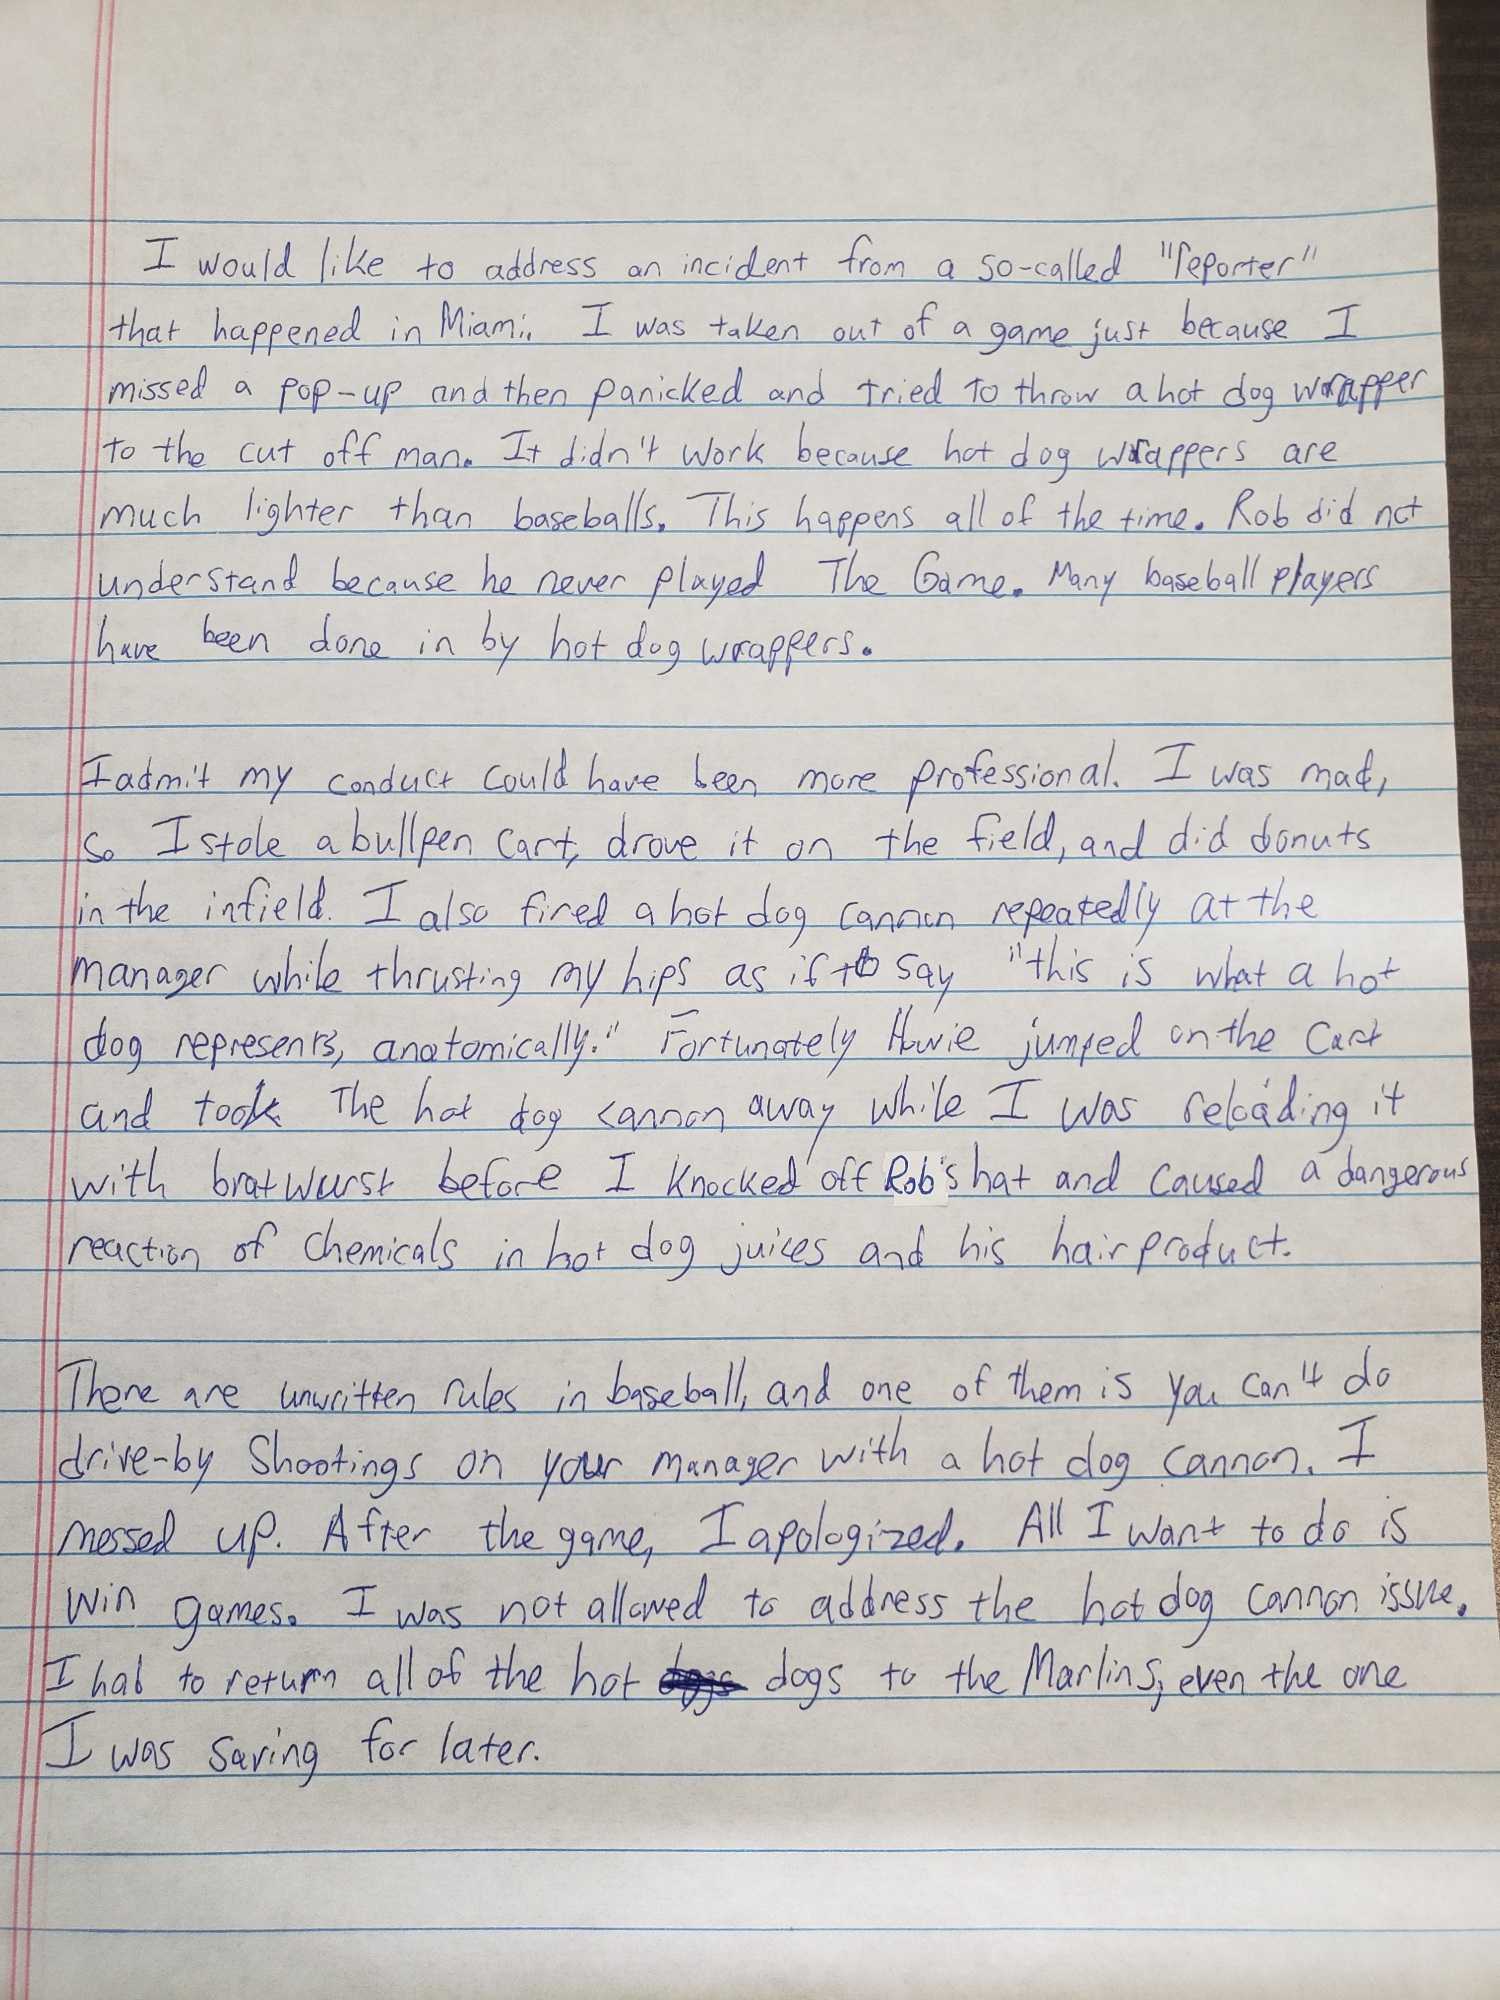 I would like to address an incident from a so-called "reporter"
that happened in Miami. I was taken out of a game just because I
missed a pop-up and then panicked and tried to throw a hot dog wrapper
to the cut off man. It didn't work because hot dog wrappers are
much lighter than baseballs. This happens all of the time. Rob did not
understand because he never played The Game. Many baseball players
have been done in by hot dog wrappers.
I admit my conduct could have been more professional. I was mad,
so I stole a bullpen cart, drove it on the field, and did donuts
in the infield. I also fired a hot dog cannon repeatedly at the
manager while thrusting my hips as if to say "this is what a hot
dog represents, anatomically." Fortunately Howie jumped on the cart
and took the hot dog cannon away while I was reloading it
with bratwurst before I knocked off Rob's hat and caused a dangerous
reaction of chemicals in hot dog juices and his hair product.
There are unwritten rules in baseball, and one of them is you can't do
drive-by shootings on your manager with a hot dog cannon. I
messed up. After the game, I apologized. All I want to do is
win games. I was not allowed to address the hot dog cannon issue.
I had to return all of the hot dogs to the Marlins, even the one
I was saving for later.